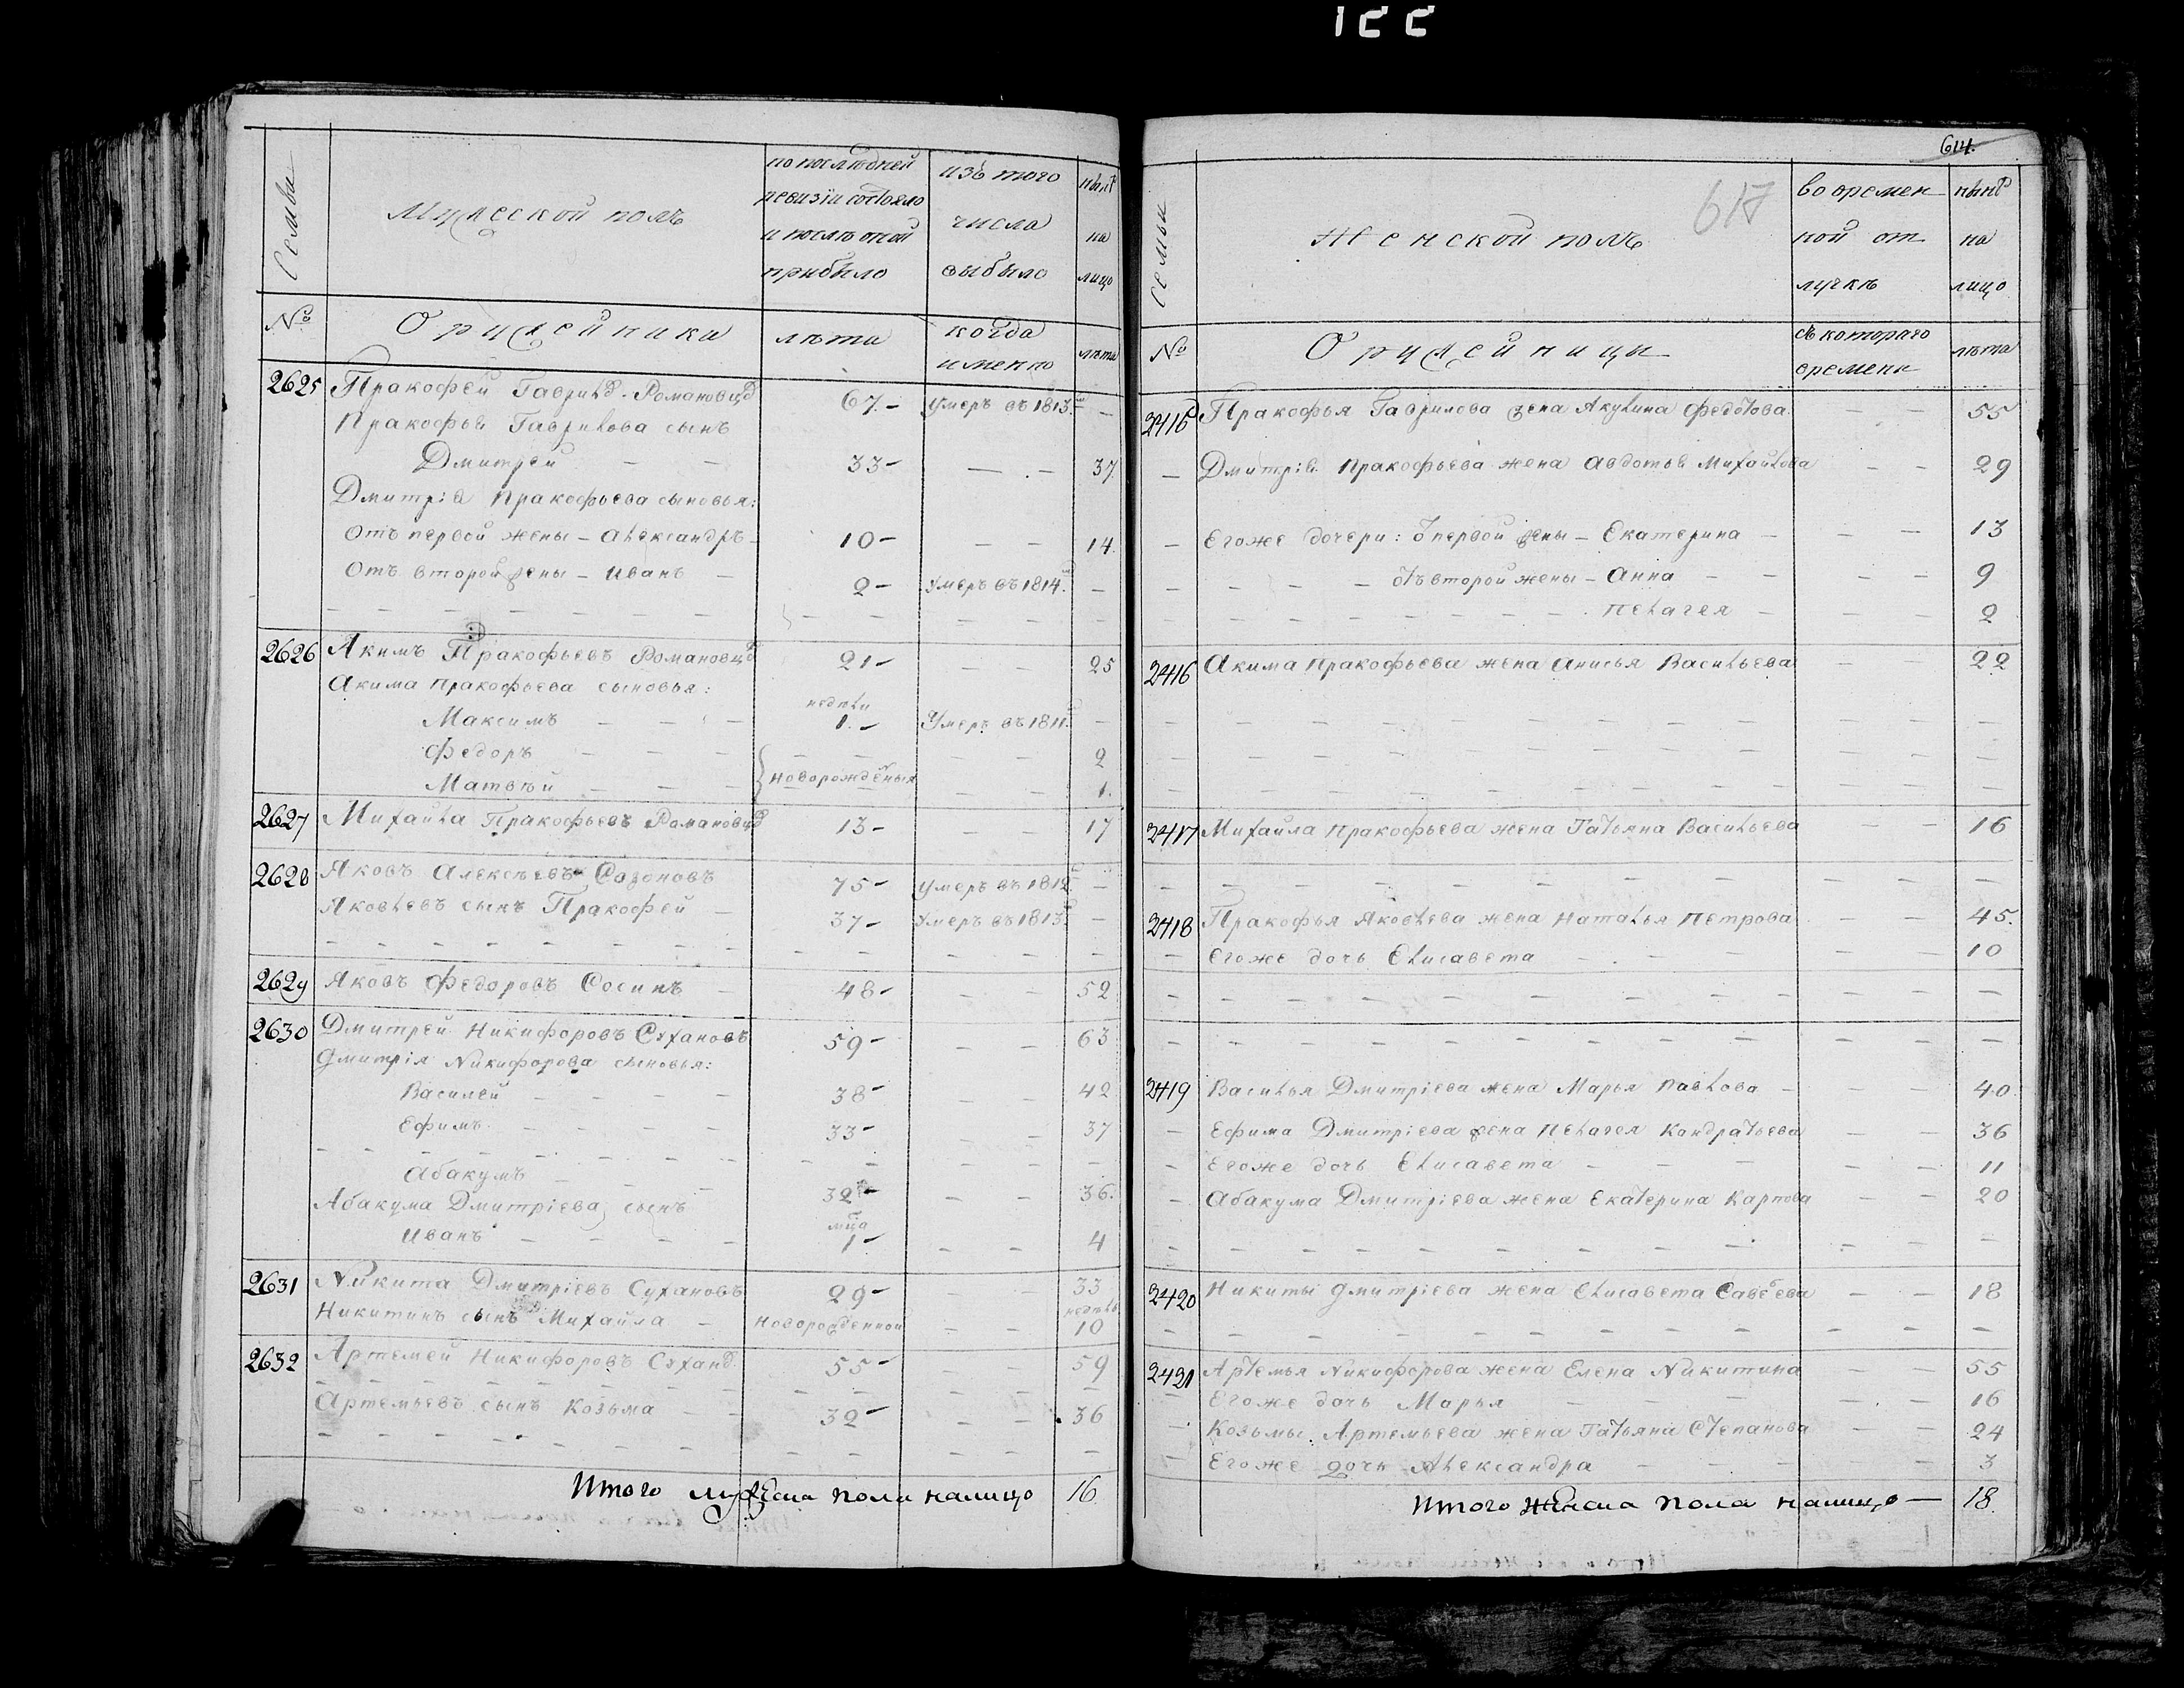 122
Семьи
Мужеской полъ
по последней
ревизіи состояло
и после оной
прибыло
изъ того
числа
выбыло
ныне
на
лицо
№
Оружейники
лета
когда
именно
лета
2625 Пракофей Гаврилд. Романовцд 67.- умеръ въ 1813. -
Пракофьв Гаврилова сынъ
Дмитрей - - 33- - - 37.
Дмитрiв Пракофьева сыновья:
Отъ первой жены - Александръ - 10- - - 14.
Отъ второй жены - Иванъ - 2- Умеръ въ 1814. -
2626 Акимъ Пракофьевъ Романовцд 21- - - 25
Акима Пракофьева сыновья:
недели
Максимъ - - - 1.- Умеръ въ 1811. -
Федоръ - - - - - 2
новорожденыя
Матвей - - - - - 1.
2627 Михайла Пракофьевъ Романовцд 13- - - 17
2628 Яковъ Алексеевъ Созоновъ 75- умеръ въ 1812 -
Яковлевъ сынъ Пракофей - 37- Умеръ въ 1813. -
2629 Яковъ Федоровъ Сосинъ - 48- - - 52
2630 Дмитрей Никифоровъ Сухановъ 59- - - 63
Дмитрія Никифорова сыновья:
Василей - - - - 38- - - 42
Ефимъ - - - - 33- - - 37
Абакумъ - - - 32- - - 36.
Абакума Дмитріева сынъ
мца
Иванъ - - - - 1- - - 4
2631 Никита Дмитріевъ Сухановъ 29- - - 33
недель
Никитинъ сынъ Михайла - Новорожденной - - 10
2632 Артемей Никифоровъ Сухand. 55- - - 59
Артемьевъ сынъ Козьма - - 32- - - 36
Итого мужеска пола налицо 16
614.
617
Семьи
Женской полъ
во времен
ной от
лучке
ныне
на
лицо
№
Оружейницы
съ котораго
времени
лета
2415 Пракофья Гаврилова жена Акулина Федотова - - 55
- Дмитрiв Пракофьева жена Авдотьв Михайлова - - 29
- Егоже дочери: Ѿ первой жены - Екатерина - - - 13
- - - - отъ второй жены - Анна - - - - 9
Пелагея - - - 2
2416 Акима Пракофьева жена Анисья Васильева - - 22
2417 Михайла Пракофьева жена Татьяна Васильева - - 16
2418 Пракофья Яковлева жена Наталья Петрова - - 45.
- Егоже дочь Елисавета - - - - - 10
2419 Василья Дмитріева жена Марья Павлова - - 40
- Ефима Дмитріева жена Пелагея Кондратьева - - 36
- Егоже дочь Елисавета - - - - - 11
- Абакума Дмитріева жена Екатерина Карпова - - 20
2420 Никиты Дмитріева жена Елисавета Савѣева - - 18
2421 Артемья Никифорова жена Елена Никитина - 55
- Егоже дочь Марья - - - - 16
- Козьмы Артемьева жена Татьяна Степанова - - 24
- Егоже дочь Александра - - - - 3
Итого женска пола налицо - 18.